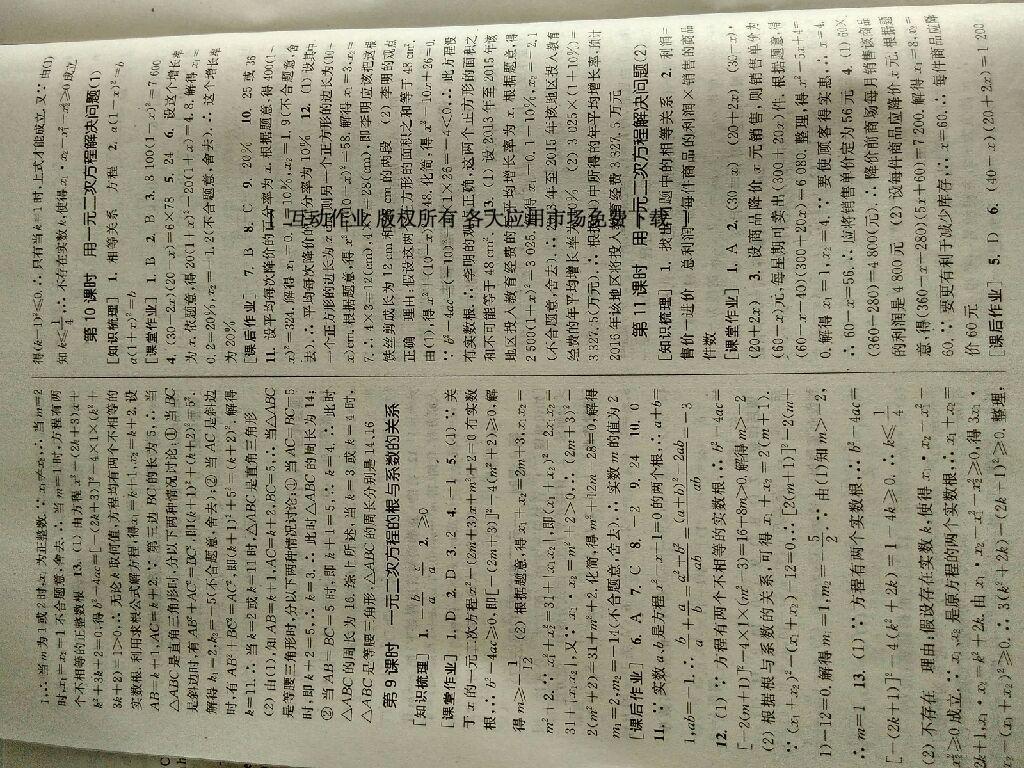 1,∴当m为1或2时,x₁为正整数.∵x₁≠x₂,∴当m=2
时,x₁=x₂=1不合题意,舍去.∴当m=1时,方程有两
个不相等的正整数根 13. (1) 由方程x²-(2k+3)x+
k²+3k+2=0,得b²-4ac=[-(2k+3)]²-4×1×(k²+
3k+2)=1>0.∴无论k取何值,方程均有两个不相等的
实数根 利用求根公式解方程,得x₁=k+1,x₂=k+2,设
AB=k+1,AC=k+2.∵第三边BC的长为5,∴当
△ABC是直角三角形时,分以下两种情况讨论:①当BC
是斜边时,有AB²+AC²=BC²,即(k+1)²+(k+2)²=5²,
解得k₁=2,k₂=-5(不合题意,舍去);②当AC是斜边
时,有AB²+BC²=AC²,即(k+1)²+5²=(k+2)²,解得
k=11.∴当k=2或k=11时,△ABC是直角三角形
(2) 由(1),知AB=k+1,AC=k+2,BC=5.∴当△ABC
是等腰三角形时,分以下两种情况讨论:①当AC=BC=5
时,即k+2=5,∴k=3.∴此时△ABC的周长为14;
②当AB=BC=5时,即k+1=5,∴k=4.∴此时
△ABC的周长为16.综上所述,当k=3或k=4时,
△ABC是等腰三角形,△ABC的周长分别是14、16
第9课时 一元二次方程的根与系数的关系
[知识梳理] 1. -b/a c/a 2. ≥0
[课堂作业] 1. D 2. D 3. 2 4. -1 5. (1) ∵关
于x的一元二次方程x²-(2m+3)x+m²+2=0有实数
根,∴b²-4ac≥0,即[-(2m+3)]²-4(m²+2)≥0,解
得m≥-1/12 (2) 根据题意,得x₁+x₂=2m+3,x₁x₂=
m²+2.∵x₁²+x₂²=31+|x₁x₂|,即(x₁+x₂)²-2x₁x₂=
31+|x₁x₂|,又∵x₁x₂=m²+2>0,∴(2m+3)²-
2(m²+2)=31+m²+2,化简,得m²+12m-28=0,解得
m₁=2,m₂=-14(不合题意,舍去).∴实数m的值为2
[课后作业] 6. A 7. C 8. -2 9. 24 10. 0
11. ∵实数a、b是方程x²-x-1=0的两个根,∴a+b=
1,ab=-1.∴b/a+a/b=(a²+b²)/ab=((a+b)²-2ab)/ab=-3
12. (1) ∵方程有两个不相等的实数根,∴b²-4ac=
[-2(m+1)]²-4×1×(m²-3)=16+8m>0,解得m>-2
(2) 根据根与系数的关系,可得x₁+x₂=2(m+1).
∵(x₁+x₂)²-(x₁+x₂)-12=0,∴[2(m+1)]²-2(m+
1)-12=0,解得m₁=1,m₂=-5/2.∵由(1)知m>-2,
∴m=1 13. (1) ∵方程有两个实数根,∴b²-4ac=
[-(2k+1)]²-4(k²+2k)=1-4k≥0.∴k≤1/4
(2) 不存在 理由:假设存在实数k,使得x₁·x₂-x₁²-
x₂²≥0成立.∵x₁、x₂是原方程的两个实数根,∴x₁+x₂=
2k+1,x₁·x₂=k²+2k.由x₁·x₂-x₁²-x₂²≥0,得3x₁·
x₂-(x₁+x₂)²≥0.∴3(k²+2k)-(2k+1)²≥0,整理,
得(k-1)²≤0.∴只有当k=1时,上式才能成立.又∵由(1)
知k≤1/4,∴不存在实数k,使得x₁·x₂-x₁²-x₂²≥0成立
第10课时 用一元二次方程解决问题(1)
[知识梳理] 1. 相等关系 方程 2. a(1-x)²=b
a(1+x)²=b
[课堂作业] 1. B 2. B 3. 8 100(1-x)²=7 600
4. (30-2x)(20-x)=6×78 5. 24 6. 设这个增长率
为x.依题意,得200(1+x)²-20(1+x)=4.8,解得x₁=
0.2=20%,x₂=-1.2(不合题意,舍去).∴这个增长率
为20%
[课后作业] 7. B 8. C 9. 20% 10. 25或36
11. 设平均每次降价的百分率为x.根据题意,得400(1-
x)²=324,解得x₁=0.1=10%,x₂=1.9(不合题意,舍
去).∴平均每次降价的百分率为10% 12. (1) 设其中
一个正方形的边长为x cm,则另一个正方形的边长为(10-
x)cm.根据题意,得x²+(10-x)²=58,解得x₁=3,x₂=
7.∴4×3=12(cm),4×7=28(cm),即李明应该把这根
铁丝剪成长为12 cm和28 cm的两段 (2) 李明的观点
正确 理由:假设这两个正方形的面积之和等于48 cm².
由(1),得x²+(10-x)²=48,化简,得x²-10x+26=0.
∵b²-4ac=(-10)²-4×1×26=-4<0,∴此方程没
有实数根.∴李明的观点正确,这两个正方形的面积之
和不可能等于48 cm² 13. (1) 设2013年至2015年该
地区投入教育经费的年平均增长率为x.根据题意,得
2 500(1+x)²=3 025,解得x₁=0.1=10%,x₂=-2.1
(不合题意,舍去).∴2013年至2015年该地区投入教育
经费的年平均增长率为10% (2) 3 025×(1+10%)=
3 327.5(万元).∴根据(1)中所得的年平均增长率,预计
2016年该地区将投入教育经费3 327.5万元
第11课时 用一元二次方程解决问题(2)
[知识梳理] 1. 找出问题中的相等关系 2. 利润=
售价-进价 总利润=每件商品的利润×销售的商品
件数
[课堂作业] 1. A 2. (30-x) (20+2x) (30-x)
(20+2x) 3. 设商品降价x元销售,则销售单价为
(60-x)元,每星期可卖出(300+20x)件.根据题意,得
(60-x-40)(300+20x)=6 080,整理,得x²-5x+4=
0,解得x₁=1,x₂=4.∵要使顾客得实惠,∴x=4.
∴60-x=56.∴应将销售单价定为56元 4. (1) 60×
(360-280)=4 800(元).∴降价前商场每月销售该商品
的利润是4 800元 (2) 设每件商品应降价x元.根据题
意,得(360-x-280)(5x+60)=7 200,解得x₁=8,x₂=
60.∵要更有利于减少库存,∴x=60.∴每件商品应降
价60元
[课后作业] 5. D 6. (40-x)(20+2x)=1 200
互动作业 版权所有 各大应用市场免费下载